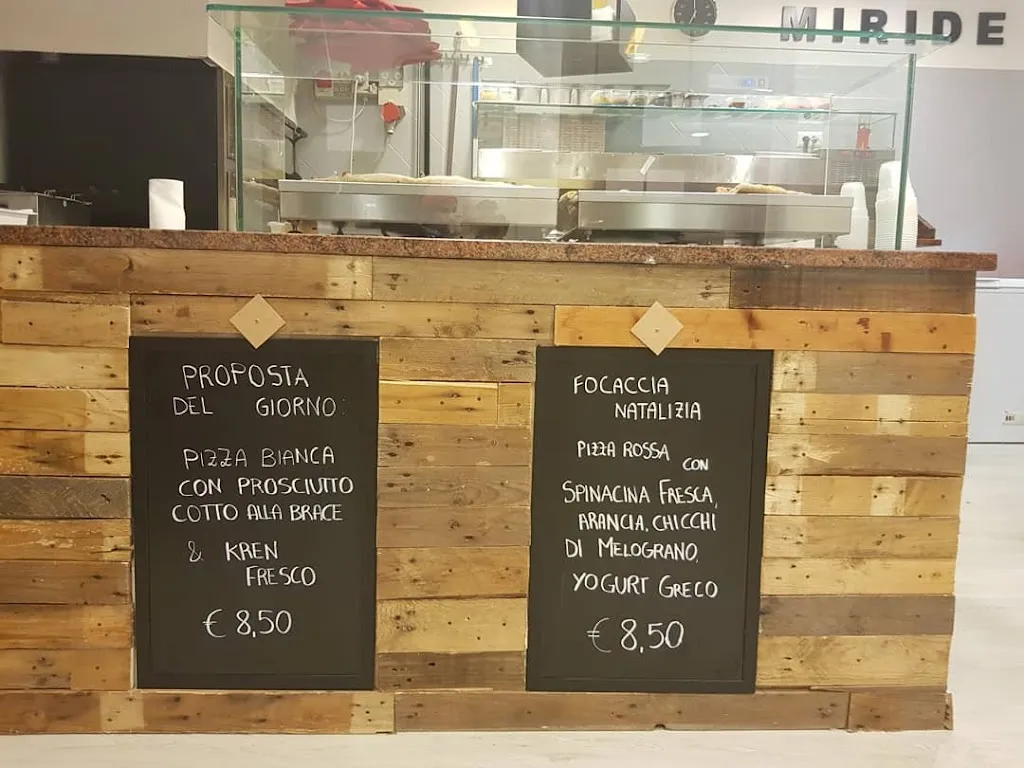 MIRIDE
PROPOSTA
DEL GIORNO:
PIZZA BIANCA
CON PROSCIUTTO
COTTO ALLA BRACE
& KREN
FRESCO
€ 8,50
FOCACCIA
NATALIZIA
PIZZA ROSSA
CON
SPINACINA FRESCA,
ARANCIA, CHICCHI
DI MELOGRANO,
YOGURT GRECO
€ 8,50